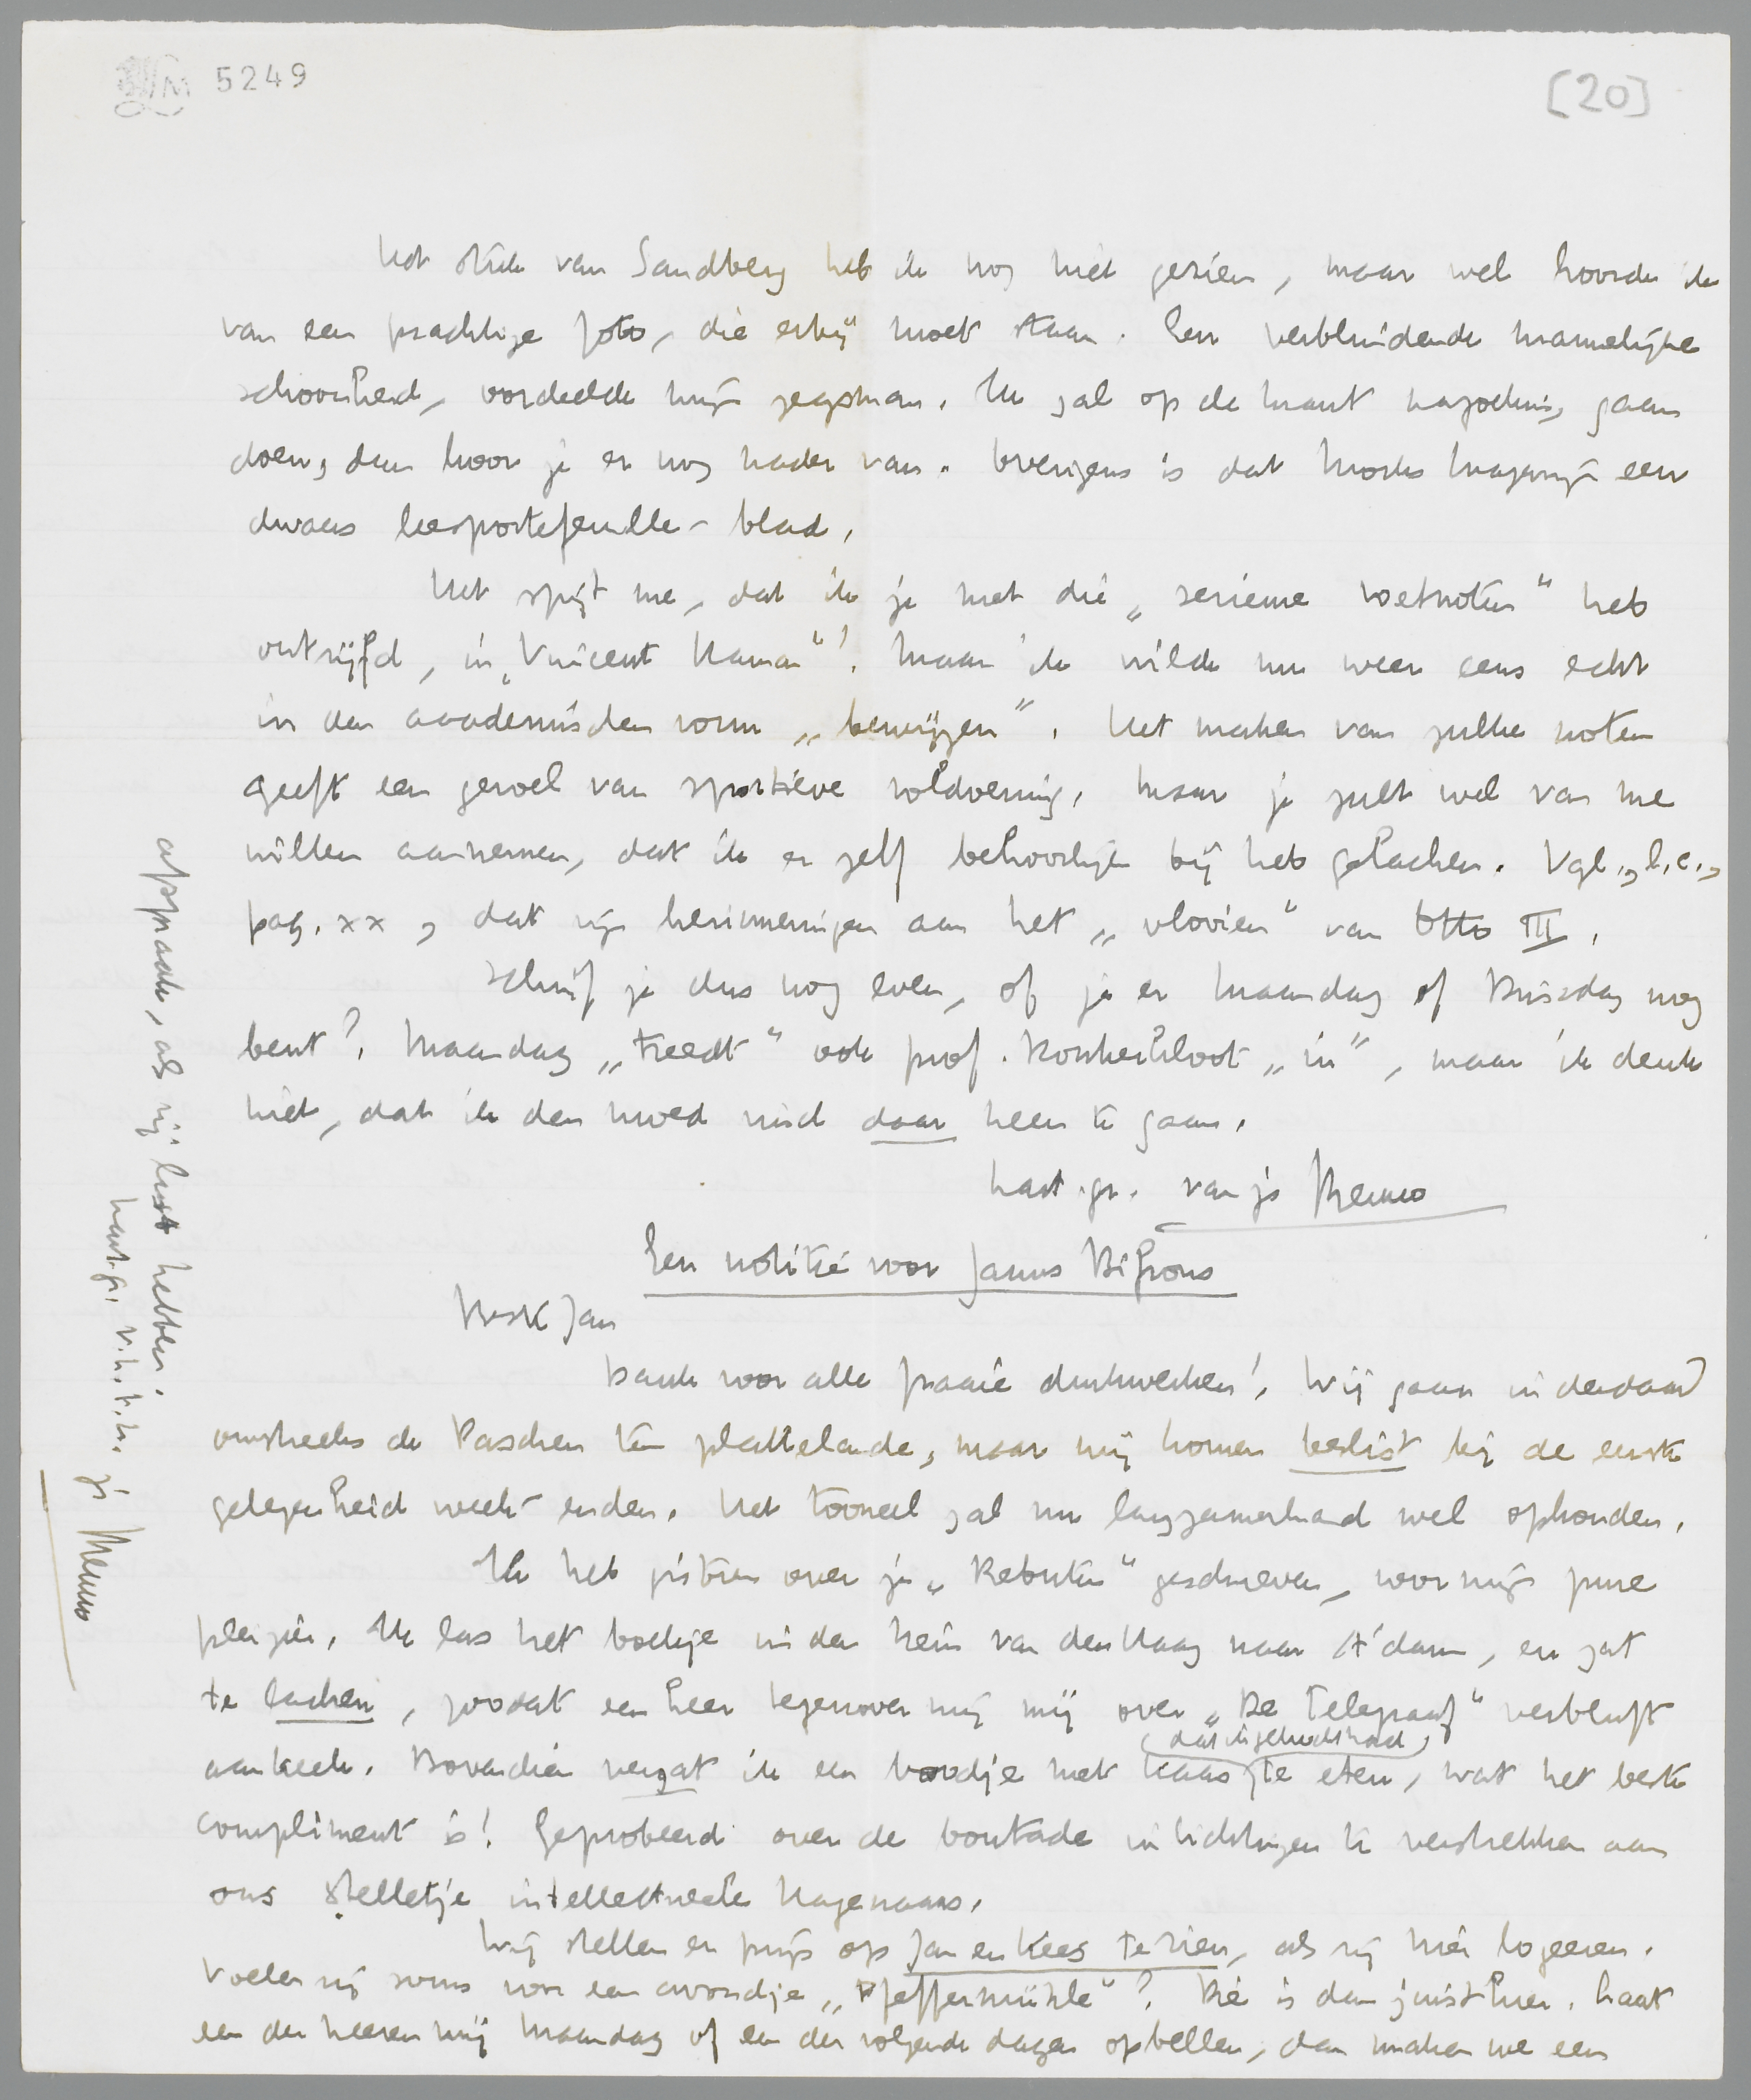 5249
[20]
Het stuk van Sandberg heb ik nog niet gezien, maar wel hoorde ik
van een prachtige foto, die erbij moet staan. Een verblindende mannelijke
schoonheid, oordeelde mijn zegsman. Ik zal op de krant nazoeking gaan
doen, dan hoor je er nog nader van. Overigens is dat Morks Magazijn een
dwaas leesportefeuille-blad.
Het spijt me, dat ik je met die „serieuze voetnoten” heb
ontrijfd, in „Vincent Haman”! Maar ik wilde nu weer eens echt
in den academischen vorm „bewijzen”. Het maken van zulke noten
geeft een gevoel van sportieve voldoening. Maar je zult wel van me
willen aannemen, dat ik er zelf behoorlijk bij heb gelachen. Vgl., l.c.,
pag. xx, dat zijn herinneringen aan het „vlooien” van Otto III.
Schrijf je dus nog even, of je er Maandag of Dinsdag nog
bent? Maandag „treedt” ook prof. Donkersloot „in”, maar ik denk
niet, dat ik den moed vind daar heen te gaan.
hart. gr. van je Menno
Een notitie voor Janus Bifrons
Beste Jan
Dank voor alle fraaie drukwerken! Wij gaan inderdaad
omstreeks de Paschen ten plattelande, maar wij komen beslist bij de eerste
gelegenheid week-enden. Het tooneel zal nu langzamerhand wel ophouden.
Ik heb gisteren over je „Debuten” geschreven, voor mij pure
plezier. Ik las het boekje in den trein van den Haag naar A'dam, en zat
te lachen, zoodat een heer tegenover mij mij over „De Telegraaf” verbluft
aankeek. Bovendien vergat ik een broodje met kaas (dat ik gekocht had) te eten, wat het beste
compliment is! Geprobeerd over de boutade inlichtingen te verstrekken aan
ons stelletje intellectueele Hagenaars.
Wij stellen er prijs op Jan en Kees te zien, als zij hier logeeren.
Voelen zij soms voor een avondje „Pfeffermühle”? Die is dan juist hier. Laat
een der heeren mij Maandag of een der volgende dagen opbellen, dan maken we een
afspraak, als zij lust hebben.
hart. gr. v.h.t.h. je Menno